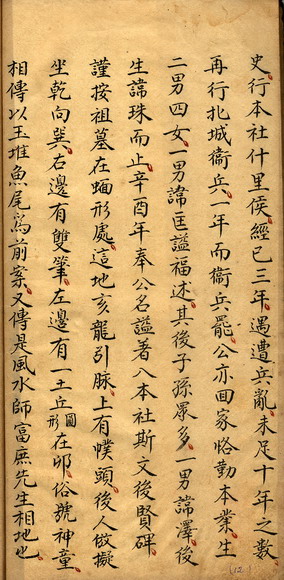 史行本社什里侯經已三年遇遭兵亂未足十年之數
再行北城衛兵一年而衛兵罷公亦回家恪勤本業生
二男四女一男諱匡謚福述其後子孫眾多一男諱澤後
生諱珠而止辛酉年奉公名謚著八本社斯文後賢碑
謹按祖墓在蝒形處這地亥龍引脉上有幞頭後人倣擬
坐乾向巽右邊有雙筆左邊有一土丘圓形在卯俗號神童
相傳以玉堆魚尾爲前案又傳是風水師富庶先生相地也
(12)